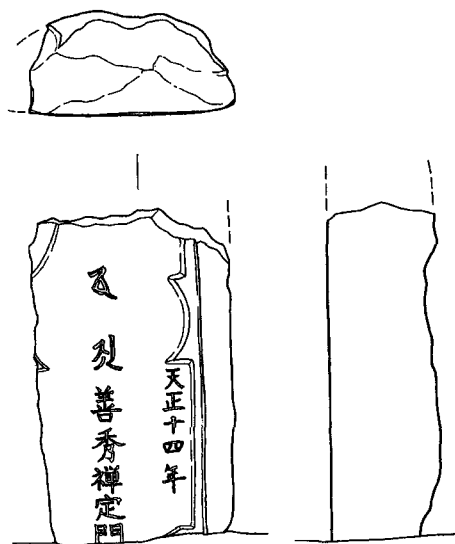 天正十四年
善秀禅定門